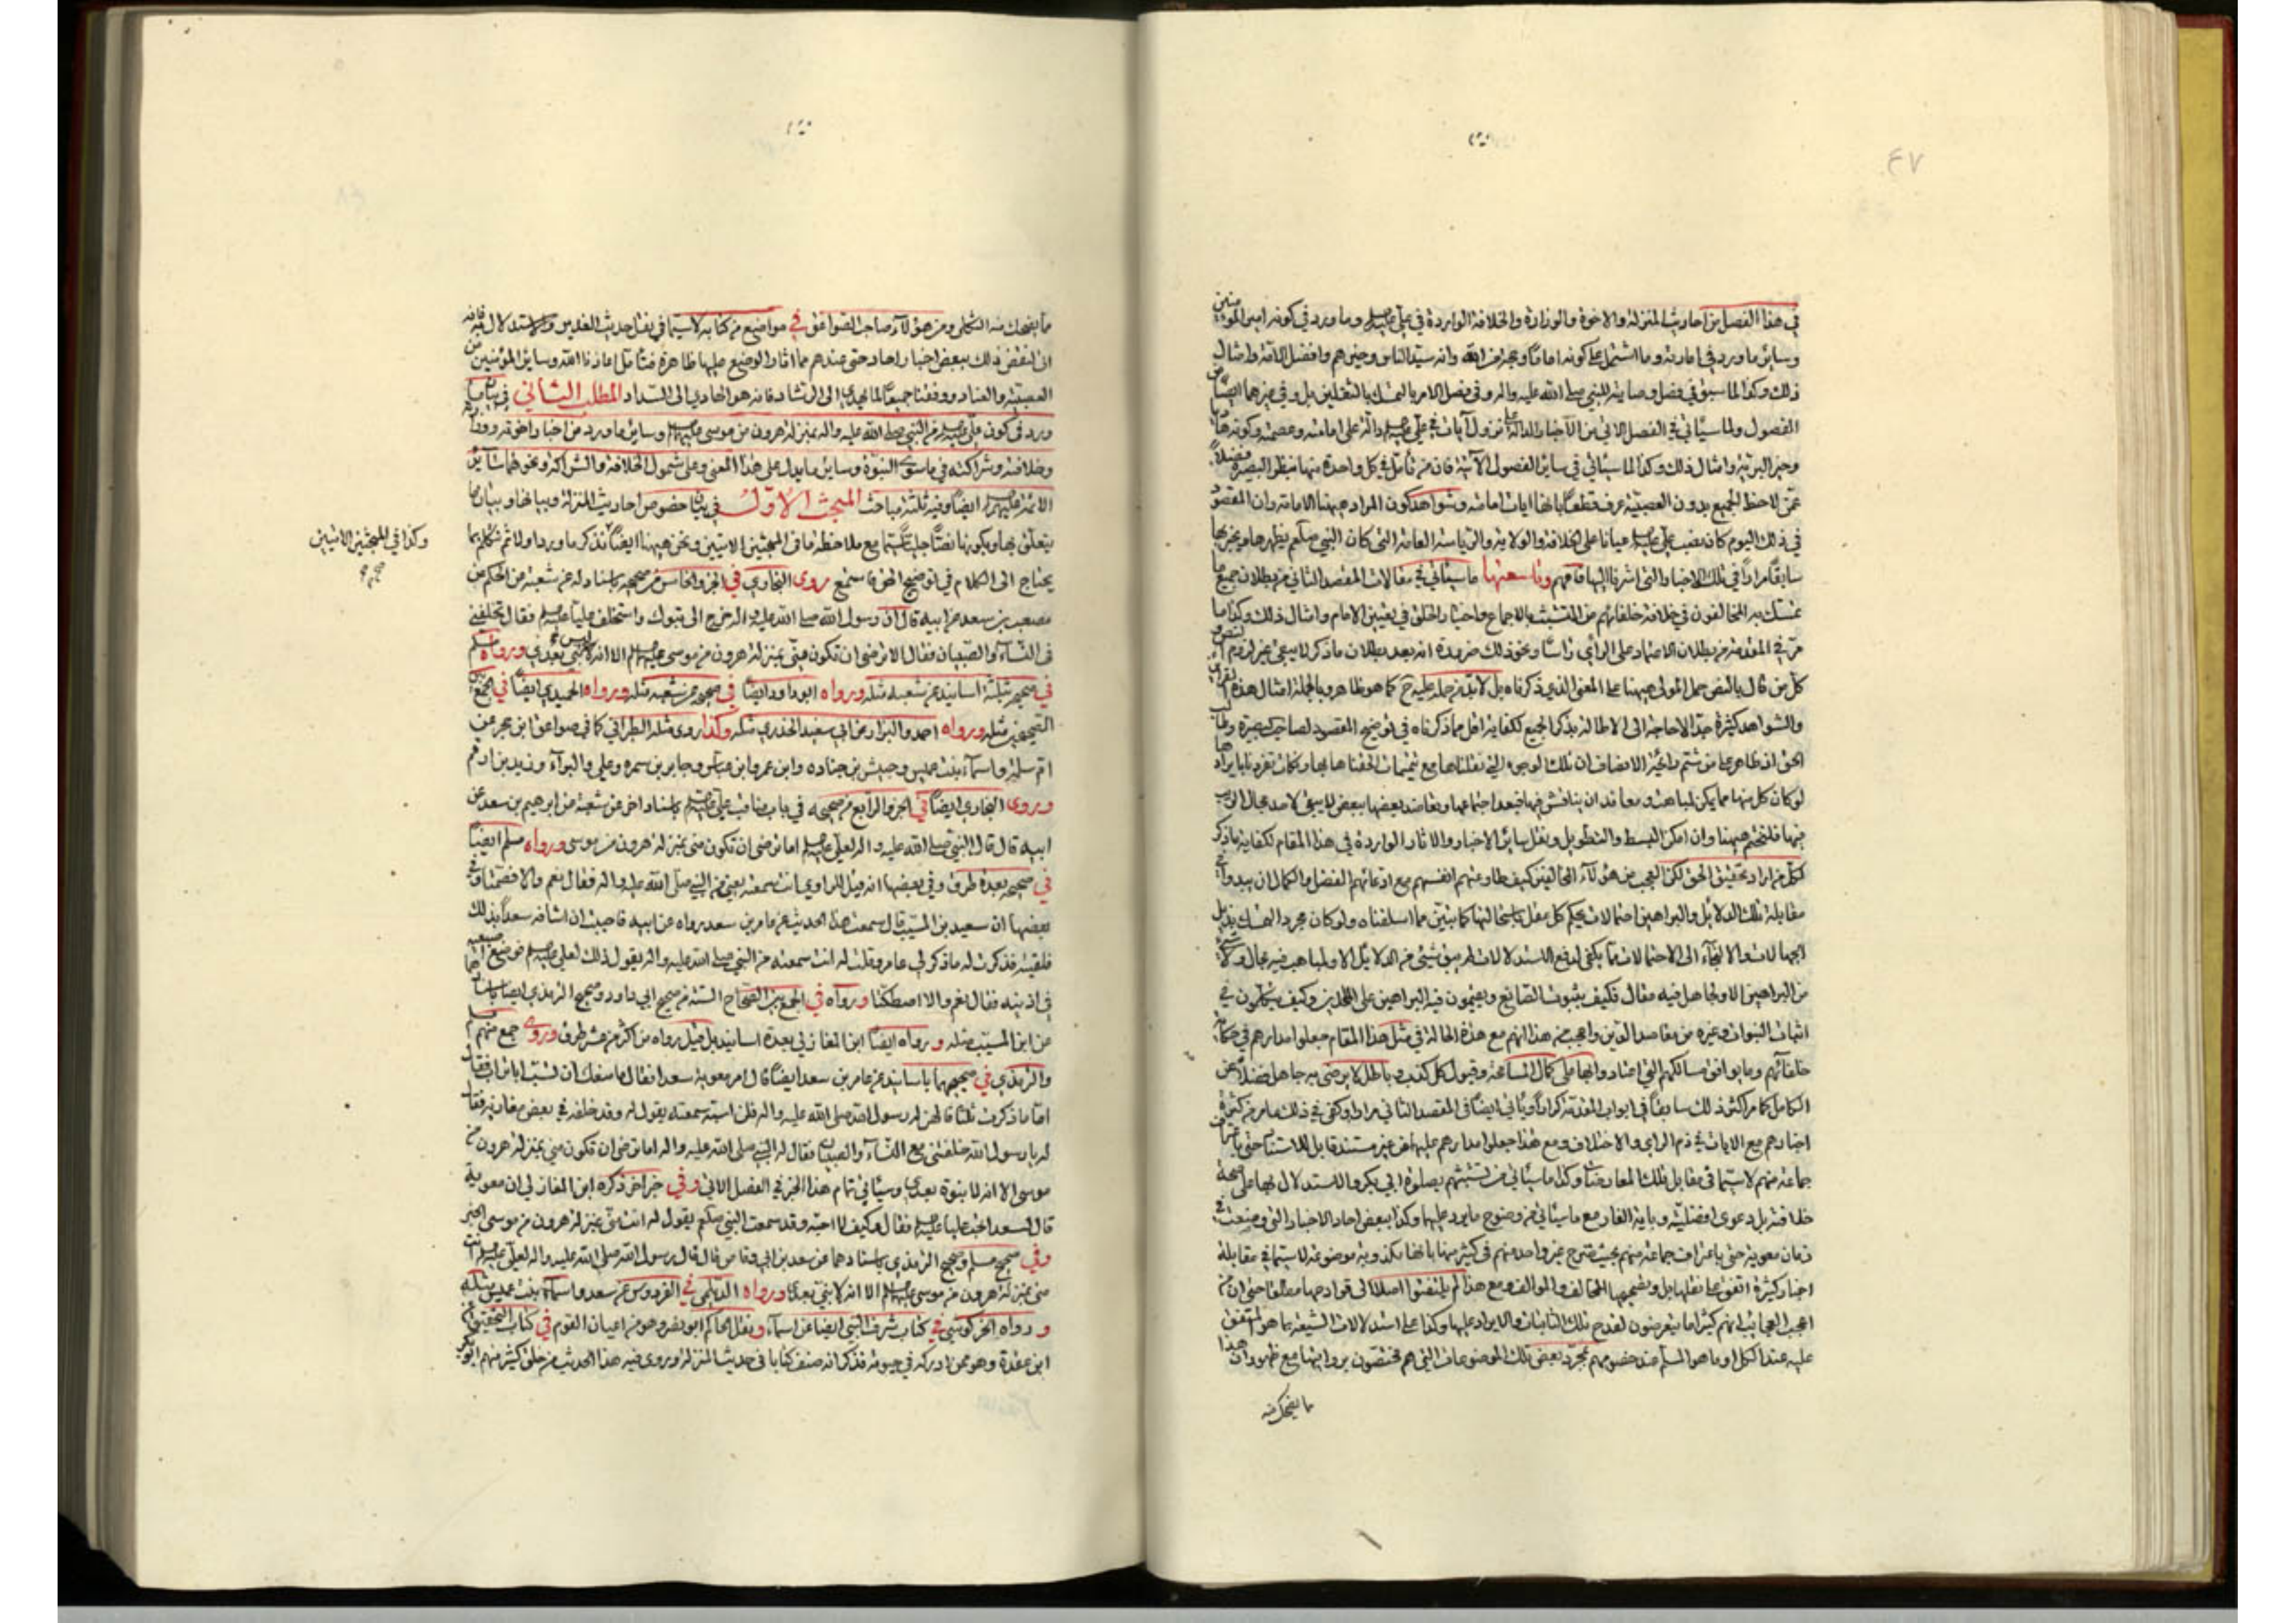 في هذا الفصل من احاديث المنزلة والاخوة والوزارة والخلافة الواردة في علي عليه السلم وما ورد في كونه امير المؤمنين
وسائر ما ورد في امارته وما اشتمل على كونه اماما وحجة من الله وانه سيد الناس وخيرهم وافضل الامة وامثال
ذلك وكذا لما سبق في فضل وصاية النبي صلى الله عليه واله وفي فصل الامر بالتمسك بالثقلين بل وفي غيرهما ايضا من
الفصول ولما سيأتي في الفصل الاتي من الاخبار الدالة على نزول آيات في علي عليه السلم دالة على امامته وعصمته وكونه
وخير البرية وامثال ذلك وكذا لما سيأتي في سائر الفصول الآتية فان من تأمل في كل واحدة منها بنظر البصيرة فضلا
عمن لاحظ الجميع بدون العصبية عرف قطعا بانها ايات امامته وشواهد كون المراد ههنا الامامة وان المقصود
في ذلك اليوم كان نصب علي عليه السلم عيانا على الخلافة والولاية والرياسة العامة التي كان النبي صلعم يظهرها ويخبر بها
سابقا مرارا في تلك الاخبار التي اشرنا اليها فافهم وتاسعها ما سيأتي في مقالات المقصد الثاني من بطلان جميع ما
تمسك به المخالفون في خلافة خلفائهم من التشبث بالاجماع واختيار الخلق في تعيين الامام وامثال ذلك وكذا ما
مر في المقدمة من بطلان الاعتماد على الرأي رأسا ونحو ذلك ضرورة انه بعد بطلان ما ذكر لا يبقى غير لزوم النصوص
كل من قال بالنص حمل المولى ههنا على المعنى الذي ذكرناه بل لا بد من حمله عليه ح كما هو ظاهر وبالجملة امثال هذه القرائن
والشواهد كثيرة جدا لا حاجة الى الاطالة بذكر الجميع لكفاية اقل مما ذكرناه في توضيح المقصود لصاحب بصيرة وطالب
الحق اذ ظاهر على من شم رائحة الانصاف ان تلك الوجوه التي نقلناها مع تتميمات الحقناها بها ونكات تفردنا بايرادها
لو كان كل منها مما يمكن لمباهت ومعاند ان يناقش فيها فبعد اجتماعها وتعاضد بعضها ببعض لا يبقى لاحد مجال الريب
فيها فلنختم ههنا وان امكن البسط والتطويل ونقل سائر الاخبار والاثار الواردة في هذا المقام لكفاية ما ذكر
لكل من اراد تحقيق الحق لكن العجب من هؤلاء المخالفين كيف طاوعتهم انفسهم مع ادعائهم الفضل والكمال ان يبدوا في
مقابلة تلك الدلائل والبراهين احتمالات يحكم كل عقل باستحالتها كما تبين مما اسلفناه ولو كان مجرد التمسك بذيل
الجهالات والالتجاء الى الاحتمالات مما يكفي لدفع الاستدلالات لم يبق شيء من الدلائل الا ولمباهت فيه مجال ولا شيء
من البراهين الا ولجاهل فيه مقال فكيف يثبتون الصانع ويقيمون فيه البراهين على الملحدين وكيف يتكلمون في
اثبات النبوات وغيره من مقاصد الدين واعجب من هذا انهم مع هذه الحالة في مثل هذا المقام جعلوا مدارهم في حكاية
خلفائهم وما يوافق مسالكهم التي اعتادوا بها على كمال المسامحة وقبول كل كذب وباطل لا يرضى به جاهل فضلا عن
الكامل كما مر اكثر ذلك سابقا في ابواب المقدمة مكررا ويأتي ايضا في المقصد الثاني مرارا وكفى في ذلك ما مر من كثرة
اخبارهم مع الايات في ذم الراي والاختلاف ومع هذا جعلوا مدارهم عليهما من غير مستند قابل للاستناد حتى باعتراف
جماعة منهم لا سيما في مقابل تلك المعارضات وكذا ما سيأتي من تشبثهم بصلوة ابي بكر والاستدلال بها على صحة
خلافته بل دعوى افضليته وباية الغار مع ما سيأتي من وضوح ما يرد عليها وكذا ببعض احاد الاخبار التي وضعت في
زمان معوية حتى باعتراف جماعة منهم بحيث صرح غير واحد منهم في كثير منها بانها مكذوبة موضوعة لا سيما في مقابلة
اخبار كثيرة اتفق على نقلها بل وتصحيحها المخالف والموالف ومع هذا لم يلتفتوا اصلا الى قوادحها مطلقا حتى ان من
اعجب العجائب انهم كثيرا ما يتعرضون لقدح تلك الثابتات والايراد عليها وكذا على استدلالات الشيعة بما هو المتفق
عليه عند الكل او ما هو المسلم عند خصومهم بمجرد بعض تلك الموضوعات التي هم مختصون بروايتها مع ظهور ان هذا
ما يضحك منه
ما يضحك منه الثكلى ومن هؤلاء صاحب الصواعق في مواضع من كتابه لا سيما في نقل حديث الغدير والاستدلال به فانه
ان لنقض ذلك ببعض اخبار احاد حتى عندهم مما اثار الوضع عليها ظاهرة فتأمل اعاذنا الله وسائر المؤمنين من
العصبية والعناد ووفقنا جميعا لما يهدي الى الرشاد فانه هو الهادي الى السداد المطلب الثاني في بيان ما
ورد في كون علي عليه السلم من النبي صلى الله عليه واله بمنزلة هرون من موسى عليهما السلم وسائر ما ورد من اخبار اخوته ووزارته
وخلافته وشراكته في ما سوى النبوة وسائر ما يدل على هذا المعنى وعلى شمول الخلافة والشراكة ونحوهما سائر
الائمة عليهم السلم ايضا وفيه ثلثة مباحث المبحث الاول في بيان خصوص احاديث المنزلة وبيانها وبيان ما
يتعلق بها وبكونها نصا جليا مع ملاحظة ما في المبحثين الاتيين ونحن ههنا ايضا نذكر ما ورد اولا ثم نتكلم بما
وكذا في المبحثين الاتيين
يحتاج الى الكلام في توضيح الحق فاستمع روى البخاري في الجزء الخامس من صحيحه باسناد له عن شعبة عن الحكم عن
مصعب بن سعد عن ابيه قال ان رسول الله صلى الله عليه واله خرج الى تبوك واستخلف عليا عليه السلم فقال اتخلفني
في النساء والصبيان فقال الا ترضى ان تكون مني بمنزلة هرون من موسى عليهما السلم الا انه ليس نبي بعدي ورواه مسلم
في صحيحه بثلثة اسانيد عن شعبة مثله ورواه ابو داود ايضا في صحيحه عن شعبة مثله ورواه الحميدي ايضا في الجمع بين
الصحيحين مثله ورواه احمد والبزار عن ابي سعيد الخدري مثله وكذا روى مثله الطبراني كما في صواعق ابن حجر عن
ام سلمة واسماء بنت عميس وحبشي بن جناده وابن عمر وابن عباس وجابر بن سمره وعلي والبراء وزيد بن ارقم
وروى البخاري ايضا في الجزء الرابع من صحيحه في باب مناقب علي عليه السلم باسناد اخر عن شعبة عن ابرهيم بن سعد عن
ابيه قال قال النبي صلى الله عليه واله لعلي عليه السلم اما ترضى ان تكون مني بمنزلة هرون من موسى ورواه مسلم ايضا
في صحيحه بعدة طرق وفي بعضها انه قيل للراوي انت سمعته يعني من النبي صلى الله عليه واله فقال نعم والا فصمتا وفي
بعضها ان سعيد بن المسيب قال سمعت هذا الحديث عن عامر بن سعد رواه عن ابيه فاحببت ان اشافه سعدا بذلك
فلقيته فذكرت له ما ذكر لي عامر وقلت له انت سمعته من النبي صلى الله عليه واله يقول ذلك لعلي عليه السلم فوضع اصبعيه
في اذنيه فقال نعم والا اصطكتا ورواه في الجمع بين الصحاح الستة من صحيح ابي داود وصحيح الترمذي ايضا باسنادهما
عن ابن المسيب مثله ورواه ايضا ابن المغازلي بعدة اسانيد بل قيل رواه من اكثر من عشر طرق وروى جمع منهم مسلم
والترمذي في صحيحهما باسانيد عن عامر بن سعد ايضا قال امر معوية سعدا فقال ما منعك ان تسب ابا تراب فقال
اما ما ذكرت ثلثا قالهن له رسول الله صلى الله عليه واله فلن اسبه سمعته يقول له وقد خلفه في بعض مغازيه فقال
له يا رسول الله خلفتني مع النساء والصبيان فقال له النبي صلى الله عليه واله اما ترضى ان تكون مني بمنزلة هرون من
موسى الا انه لا نبوة بعدي وسيأتي تمام هذا الخبر في الفصل الاتي وفي خبر اخر ذكره ابن المغازلي ان معوية
قال لسعد اتحب عليا عليه السلم فقال وكيف لا احبه وقد سمعت النبي صلعم يقول له انت مني بمنزلة هرون من موسى الخبر
وفي صحيح مسلم وصحيح الترمذي باسنادهما عن سعد بن ابي وقاص قال قال رسول الله صلى الله عليه واله لعلي عليه السلم انت
مني بمنزلة هرون من موسى عليهما السلم الا انه لا نبي بعدي ورواه الديلمي في الفردوس عن سعد واسماء بنت عميس مثله
ورواه الخركوشي في كتاب شرف النبي ايضا عن اسماء ونقل الحاكم ابو نصر وهو من اعيان القوم في كتاب التحقيق عن
ابن عقدة وهو ممن ادركه في حيوته فذكر انه صنف كتابا في حديث المنزلة وروى فيه هذا الحديث عن خلق كثير منهم ابو بكر